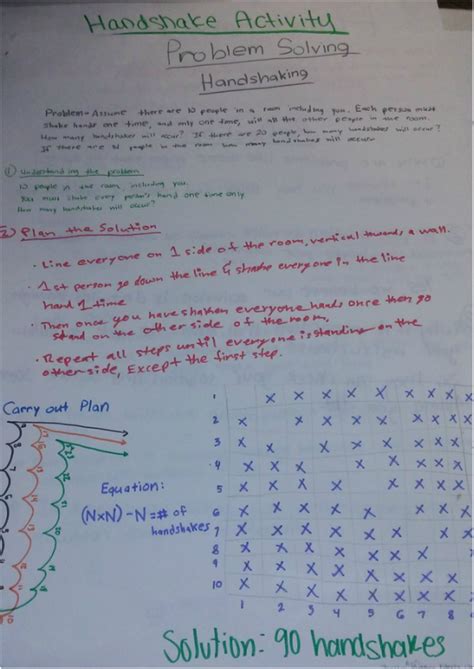 Handshake Activity
Problem Solving
Handshaking
Problem - Assume there are 10 people in a room including you. Each person must
shake hands one time, and only one time, will all the other people in the room.
How many handshakes will occur? If there are 20 people, how many handshakes will occur?
If there are people in the room how many handshakes will occur
① Understanding the problem
10 people in the room, including you.
You must shake every person's hand one time only
How many handshakes will occur?
2) Plan the Solution
· Line everyone on 1 side of the room, vertical towards a wall.
· 1st person go down the line & shake everyone in the line
hand 1 time
· Then once you have shaken everyone hands once then go
stand on the other side of the room,
· Repeat all steps until everyone is standing on the
other side, Except the first step.
Carry out Plan
Equation:
(N×N)-N=# of
handshakes
1 X X X X X X X X
2 X X X X X X X
3 X X X X X X X X
4 X X X X X X X
5 X X X X X X X
6 X X X X X X X
7 X X X X X X X
8 X X X X X X X
9 X X X X X X X X
10 X X X X X X X X
1 2 3 4 5 6 7 8
Solution: 90 handshakes